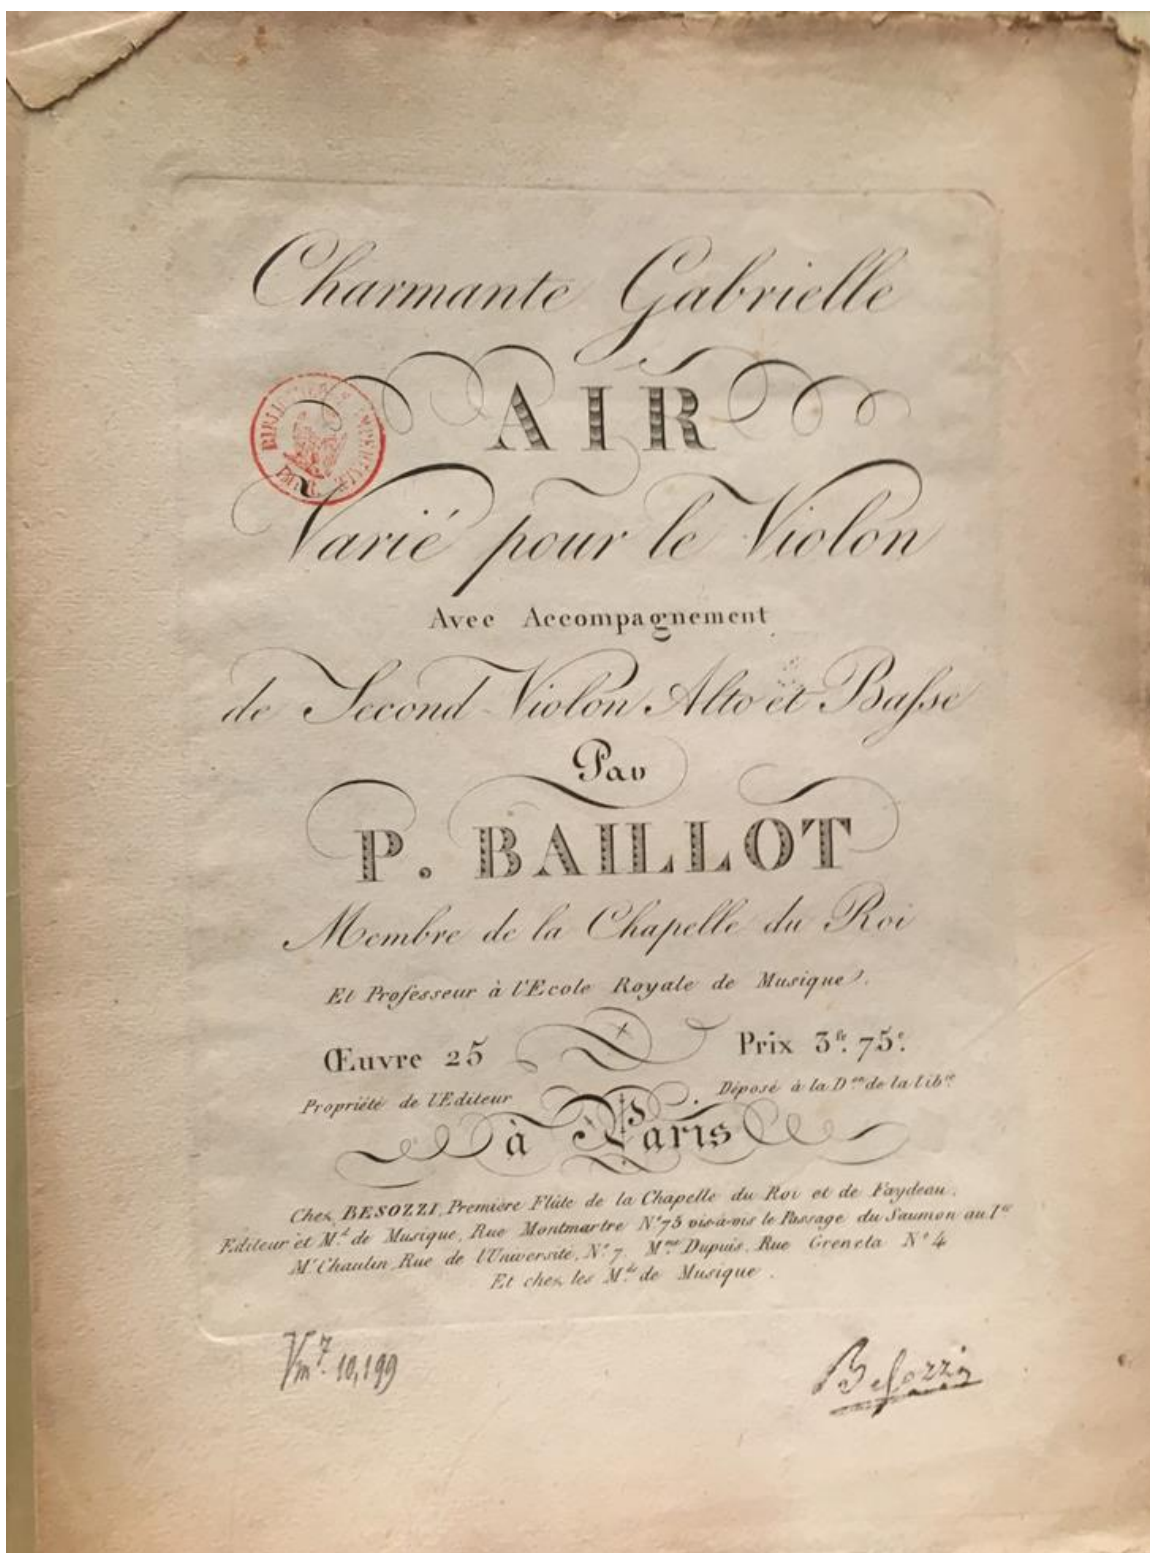 Charmante Gabrielle
AIR
BIBLIOTHEQUE IMPERIALE
Varié pour le Violon
Avec Accompagnement
de Second Violon Alto et Baſse
Par
P. BAILLOT
Membre de la Chapelle du Roi
Et Professeur à l'Ecole Royale de Musique.
Œuvre 25 Prix 3fr. 75c.
Propriété de l'Editeur Déposé à la Don de la Librie
à Paris
Chez BESOZZI, Première Flûte de la Chapelle du Roi et de Faydeau.
Editeur et Md. de Musique, Rue Montmartre No. 75 vis-à-vis le Passage du Saumon au 1er
Mr. Chaulin, Rue de l'Université, No. 7. Mme. Dupuis, Rue Greneta No 4
Et chez les Mds. de Musique.
Vm7. 10,199
Beſozzi